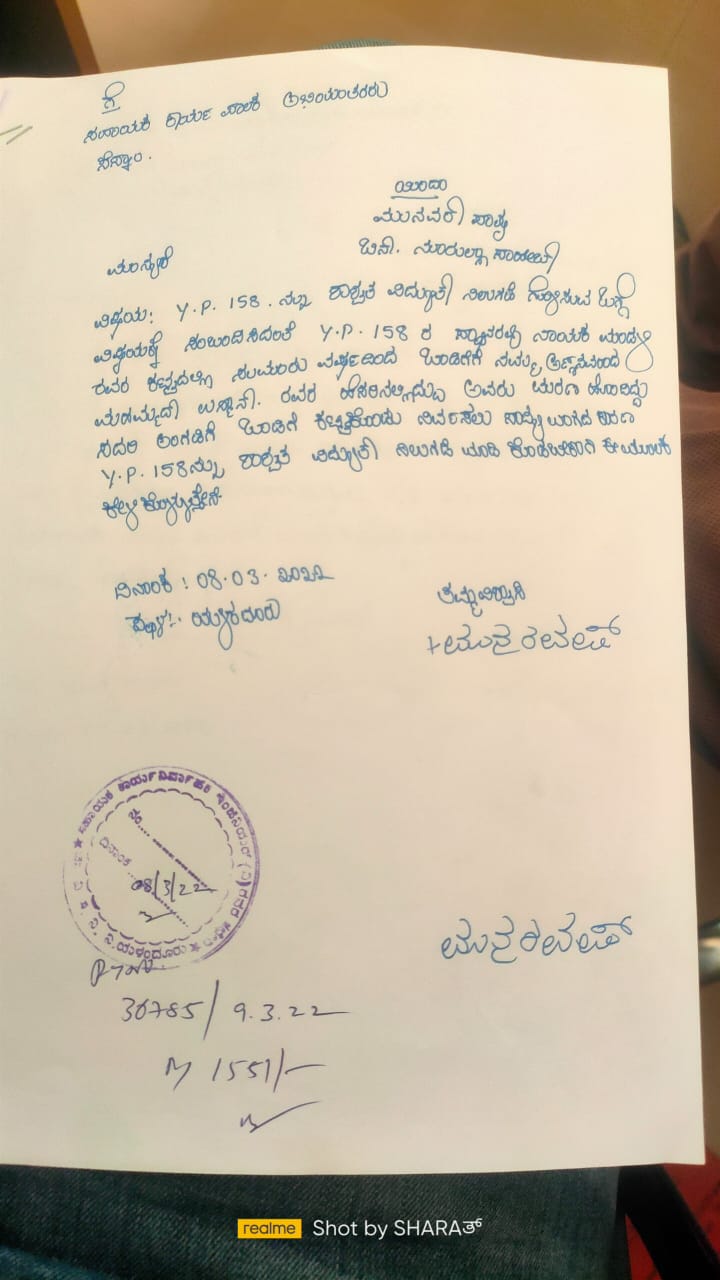 ಗೆ
ಸಹಾಯಕ ಕಾರ್ಯ ಪಾಲಕ ಅಭಿಯಂತರರು
ಸೆಸ್ಕಾಂ.
ಯಿಂದಾ
ಮುನವರ್ ಪಾಷ
ಬಿನ್. ನೂರುಲ್ಲಾ ಸಾಹೇಬ್
ಮಾನ್ಯರೆ
ವಿಷಯ: Y.P. 158. ನ್ನು ಶಾಶ್ವತ ವಿದ್ಯುತ್ ನಿಲುಗಡೆ ಗೊಳಿಸುವ ಬಗ್ಗೆ
ವಿಷಯಕ್ಕೆ ಸಂಬಂದಿಸಿದಂತೆ Y.P. 158 ರ ಸ್ಥಾವರವು ನಾಯಕ
ರವರ ವರ್ಷದಿಂದ ಬಾಡಿಗೆಗೆ ನಮ್ಮ
ಮಹಮ್ಮದ್ ಉಸ್ಮಾನ್. ರವರ ಹೆಸರಿನಲ್ಲಿದ್ದು ಅವರು ಮರಣ ಹೊಂದಿದ್ದು
ಸದರಿ ಅಂಗಡಿಗೆ ಬಾಡಿಗೆ ಕಟ್ಟಿಕೊಂಡು ನಿರ್ವಹಿಸಲು ಕಾರಣ
Y.P. 158ನ್ನು ಶಾಶ್ವತ ವಿದ್ಯುತ್ ನಿಲುಗಡೆ ಮಾಡಿ ಕೊಡಬೇಕಾಗಿ ಈ ಮೂಲಕ
ಕೇಳಿಕೊಳ್ಳುತ್ತೇನೆ.
ದಿನಾಂಕ : 08.03.೨೦೨೨
ಸ್ಥಳ: ಯಳಂದೂರು
ತಮ್ಮ ವಿಶ್ವಾಸಿ
ಮುನವರ್ ಪಾಷ
ಸಹಾಯಕ ಕಾರ್ಯನಿರ್ವಾಹಕ ಇಂಜಿನಿಯರ್ (ವಿ)
ಯಳಂದೂರು
ನಂ....
ದಿನಾಂಕ
08/3/22
ಮುನವರ್ ಪಾಷ
30785/ 9.3.22
1551/-
realme Shot by SHARAತ್